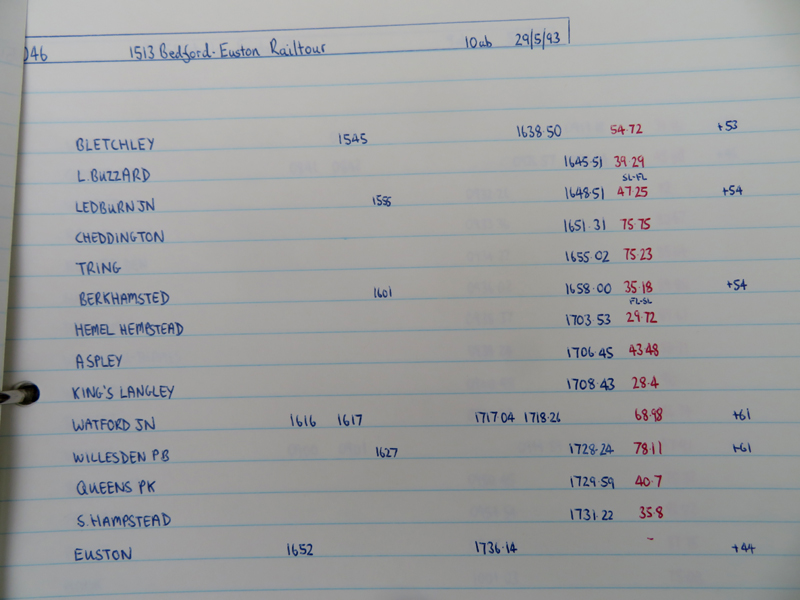 046 1513 Bedford-Euston Railtour 10ab 29/5/93
BLETCHLEY 1545 1638.50 54.72 +53
L. BUZZARD 1645.51 39.29
SL-FL
LEDBURN JN 1555 1648.51 47.25 +54
CHEDDINGTON 1651.31 75.75
TRING 1655.02 75.23
BERKHAMSTED 1601 1658.00 35.18 +54
FL-SL
HEMEL HEMPSTEAD 1703 53 29.72
ASPLEY 1706 45 43.48
KING'S LANGLEY 1708.43 28.4
WATFORD JN 1616 1617 1717 04 1718.26 68.98 +61
WILLESDEN PB 1627 1728.24 78.11 +61
QUEENS PK 1729.59 40.7
S. HAMPSTEAD 1731.22 35.8
EUSTON 1652 1736.14 - +44